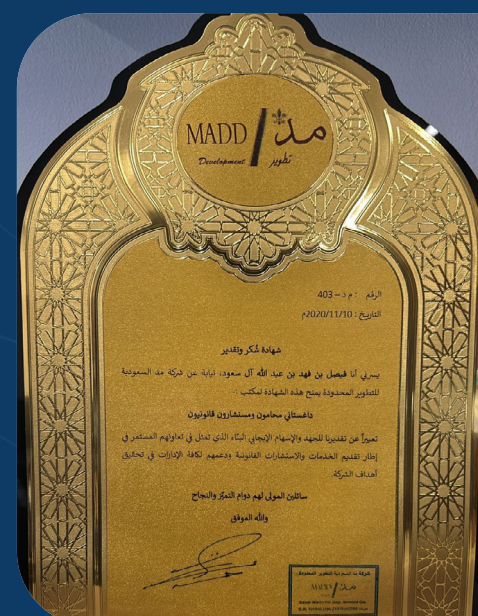 MADD مد
Development تطوير
الرقم : م د – 403
التاريخ : 2020/11/10م
شهادة شكر وتقدير
يسرني أنا فيصل بن فهد بن عبد الله آل سعود، نيابة عن شركة مد السعودية
للتطوير المحدودة بمنح هذه الشهادة لمكتب :-
داغستاني محامون ومستشارون قانونيون
تعبيراً عن تقديرنا للجهد والإسهام الإيجابي البنّاء الذي تمثل في تعاونهم المستمر في
إطار تقديم الخدمات والاستشارات القانونية ودعمهم لكافة الإدارات في تحقيق
أهداف الشركة.
سائلين المولى لهم دوام التميّز والنجاح
والله الموفق
شركة مد السعودية للتطوير المحدودة
مد MADD